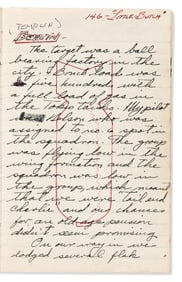 146 - "Lone Butch"
The target was a ball
bearing factory in the
city. Bomb load was
five hundred with
full load of gas in
the Tokyo tanks. My pilot
Nelson who was
assigned to no. 6 spot in
the squadron. The group
was flying low in the
wing formation and the
squadron was low in
the group, which meant
that we were tail end
Charlie and our chances
for an old age pension
didn't seem promising.
On our way in we
dodged several flak